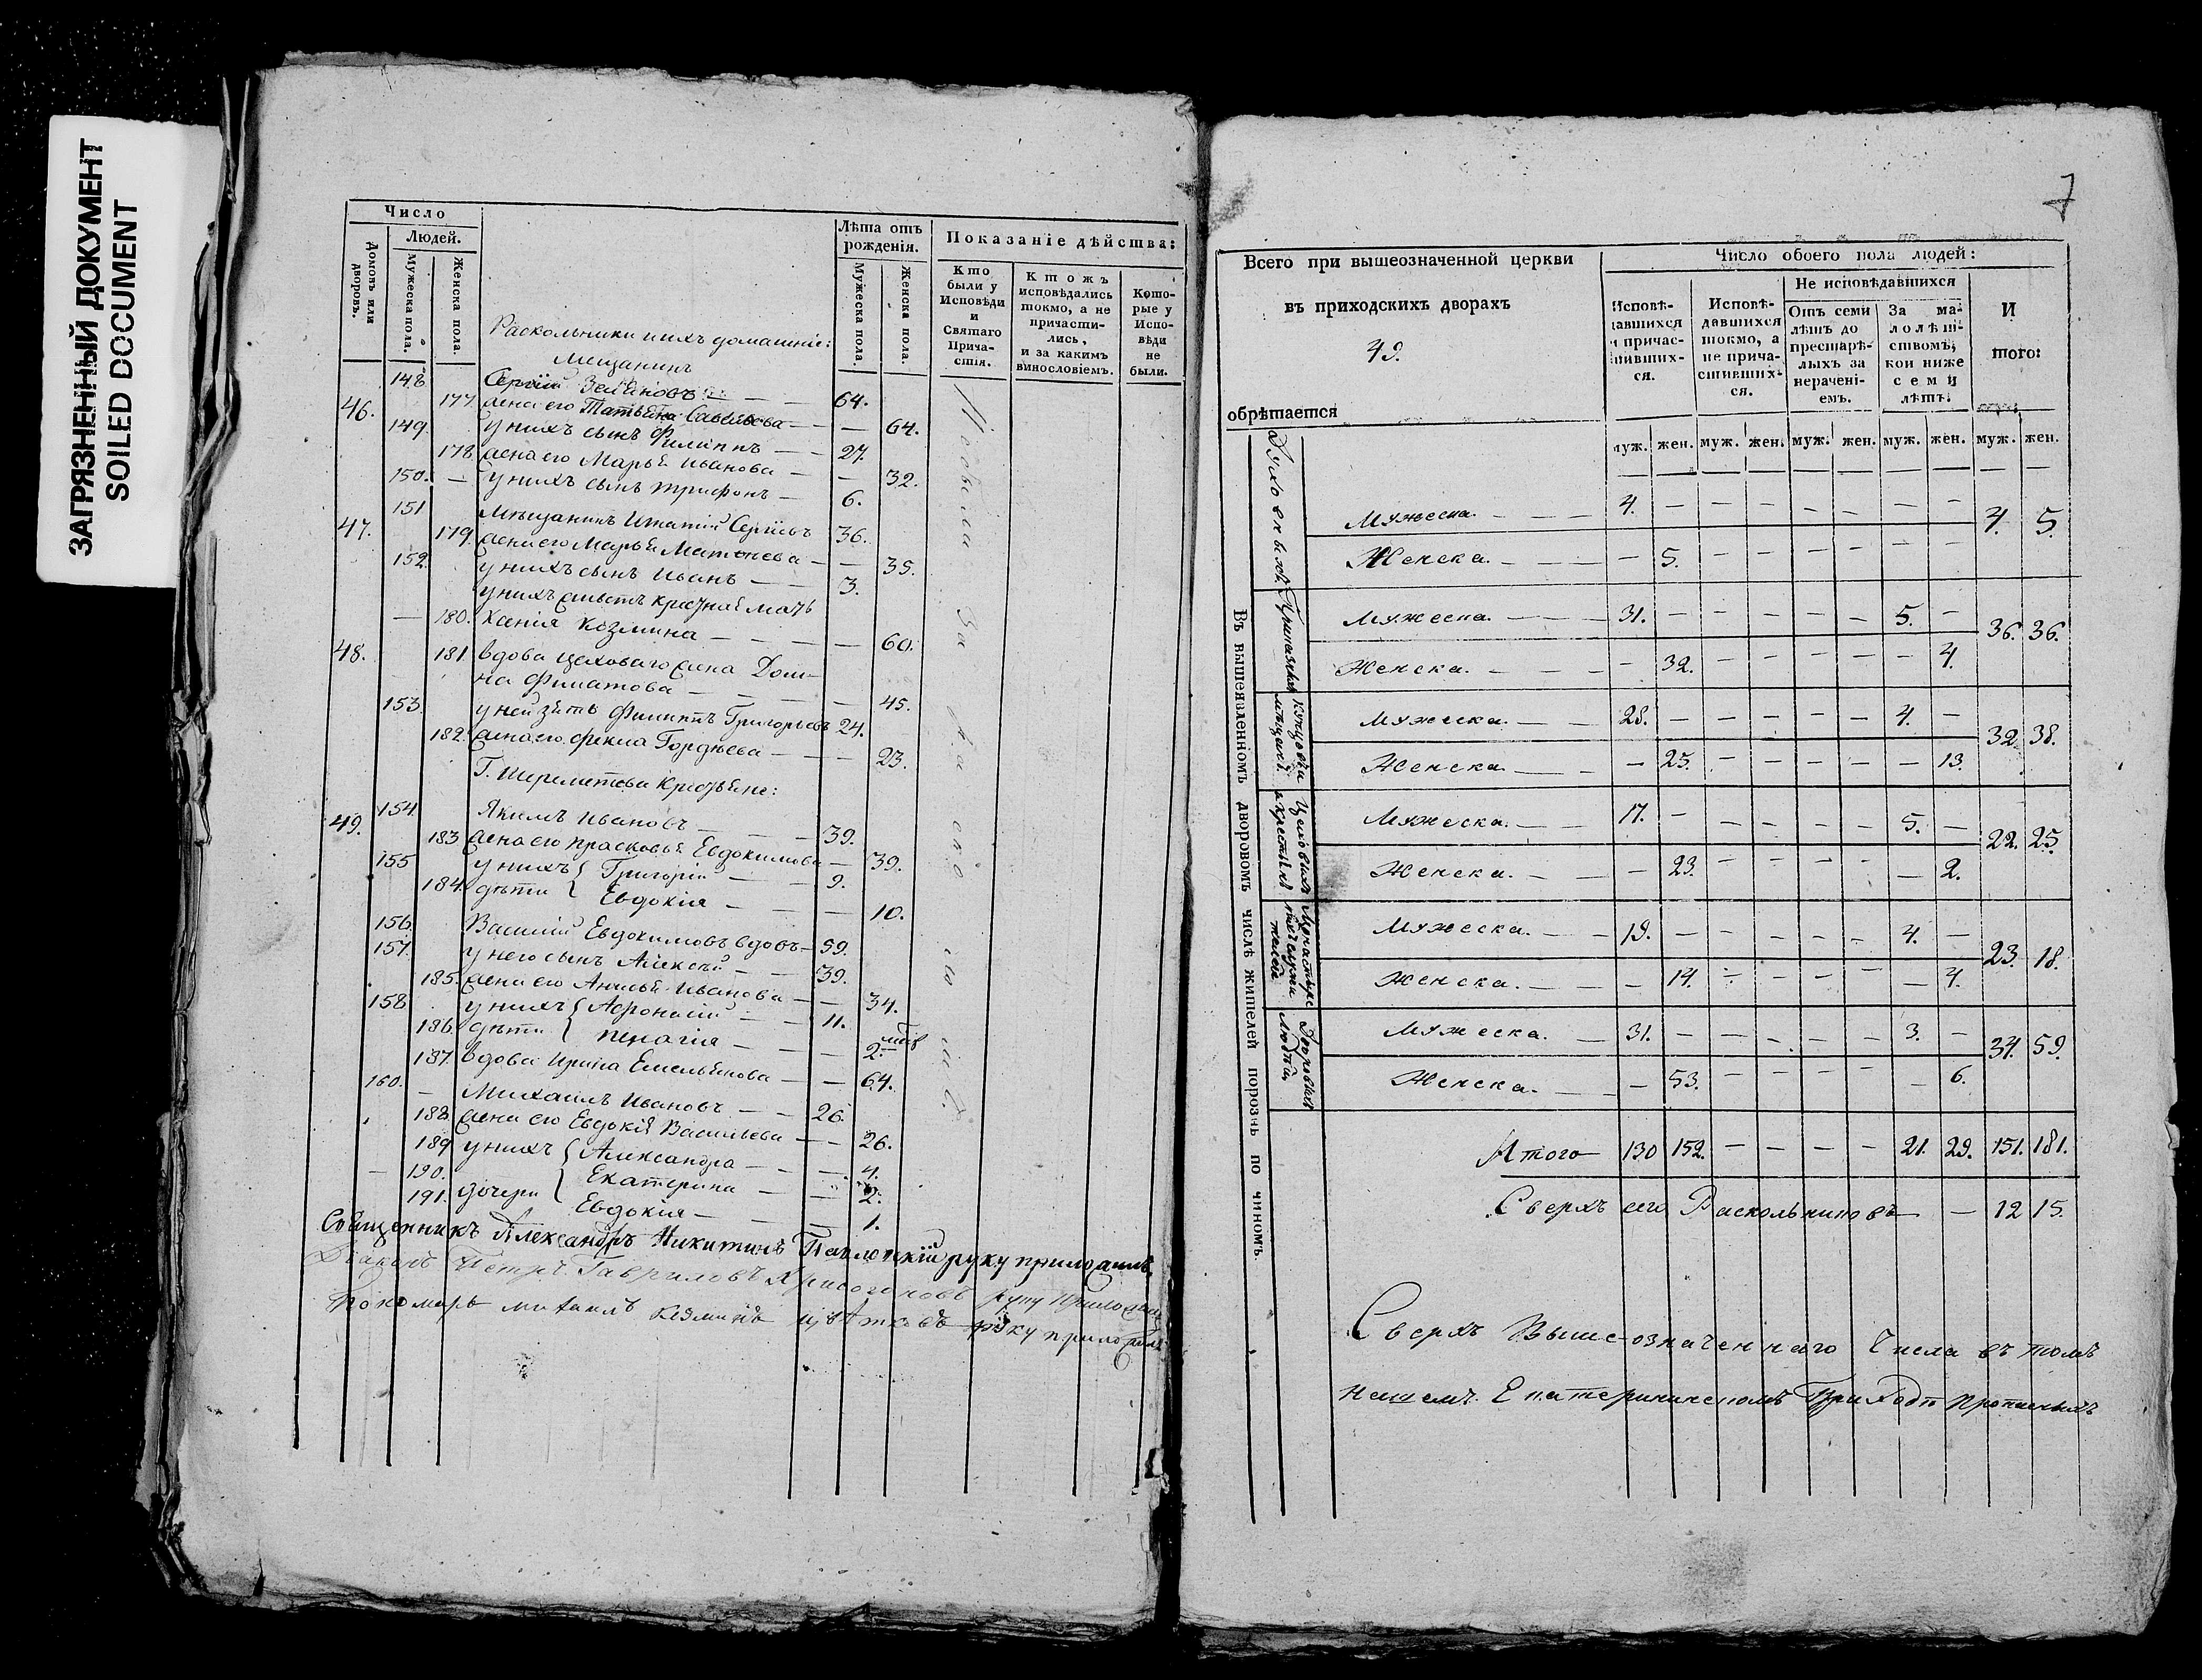 ЗАГРЯЗНЕННЫЙ ДОКУМЕНТ
SOILED DOCUMENT
Число
Людей.
Домовъ или дворовъ.
Мужеска пола.
Женска пола.
Лѣта отъ рожденія.
Мужеска пола.
Женска пола.
Показаніе дѣйства:
Кто были у Исповѣди и Святаго Причастія.
Ктожъ исповѣдались токмо, а не причастились, и за какимъ винословіемъ.
Которые у Исповѣди не были.
Раскольники и ихъ домашніе:
Мещанинъ
148 Сергій — — 64.
46. 177 жена его Татьяна Савельева — — 64.
149. у нихъ сынъ Филиппъ — — 27.
178 жена его Марья Иванова — — 32.
150. — у нихъ сынъ Трифонъ — 6.
47. 151 Мѣщанинъ Игнатій Сергѣевъ 36.
179. жена его Марья Матвѣева — — 35.
152. у нихъ сынъ Иванъ — — 3.
у нихъ мать
— 180. Ксенія Козмина — — — 60.
48. 181. вдова цеховаго жена Дом-
на Филатова — — — 45.
153. у ней зять Филиппъ Григорьевъ 24.
182. жена его Фекла Гордѣева — — 23.
Г. Шереметева Крестьяне:
49. 154. Якимъ Ивановъ — — — 39.
183 жена его Прасковья Евдокимова — 39.
155 у нихъ { Григорій — — 9.
184. дѣти { Евдокія — — — 10.
156. Василій Евдокимовъ вдовъ — 59.
157. у него сынъ Алексѣй — — 39.
185. жена его Анисья Иванова — — 34.
158 у нихъ { Афонасій — — 11.
186. дѣти { Пелагія — — — 2.
187. вдова Ирина Емельянова — — 64.
160. — Михаилъ Ивановъ — — 26.
188. жена его Евдокія Васильева — — 26.
189 у нихъ { Александра — — 4.
— 190. дочери { Екатерина — — 2.
191. Евдокія — — — 1.
Не были за расколомъ.
Священникъ Александръ Никитинъ Павловскій руку приложилъ
Діаконъ Петръ Гавриловъ руку приложилъ
Пономарь Михаилъ Козминъ Цвѣтковъ руку приложилъ
7
Всего при вышеозначенной церкви
въ приходскихъ дворахъ
49.
обрѣтается
Число обоего пола людей:
Исповѣдавшихся и причастившихся.
Исповѣдавшихся токмо, а не причастившихся.
Не исповѣдавшихся
Отъ семи лѣтъ до престарѣлыхъ за нераченіемъ.
За малолѣтствомъ, кои ниже семи лѣтъ.
И того:
муж. жен. муж. жен. муж. жен. муж. жен. муж. жен.
Въ вышеявленномъ дворовомъ числѣ жителей порознь по чиномъ.
Духовныхъ
Мужеска. — — — 4. — — — — — — — 4. 5.
Женска. — — — — 5. — — — — — —
Приказныхъ
Мужеска. — — — 31. — — — — — 5. — 36. 36.
Женска. — — — — 32. — — — — — 4.
Купцовъ и мѣщанъ
Мужеска. — — 28. — — — — — 4. — 32. 38.
Женска. — — — 25. — — — — — 13.
Цеховыхъ и крестьянъ
Мужеска. — — 17. — — — — — 5. — 22. 25.
Женска. — — — 23. — — — — — 2.
Мужеска. — — 19. — — — — — 4. — 23. 18.
Женска. — — — 14. — — — — — 4.
Дворовыхъ людей
Мужеска. — — 31. — — — — — 3. — 34. 59.
Женска. — — — 53. — — — — — 6.
Итого 130 152. — — — — 21. 29. 151. 181.
Сверхъ сего Раскольниковъ — — 12 15.
Сверхъ Вышеозначеннаго Числа въ томъ
нашемъ Екатерининскомъ Приходѣ прописныхъ